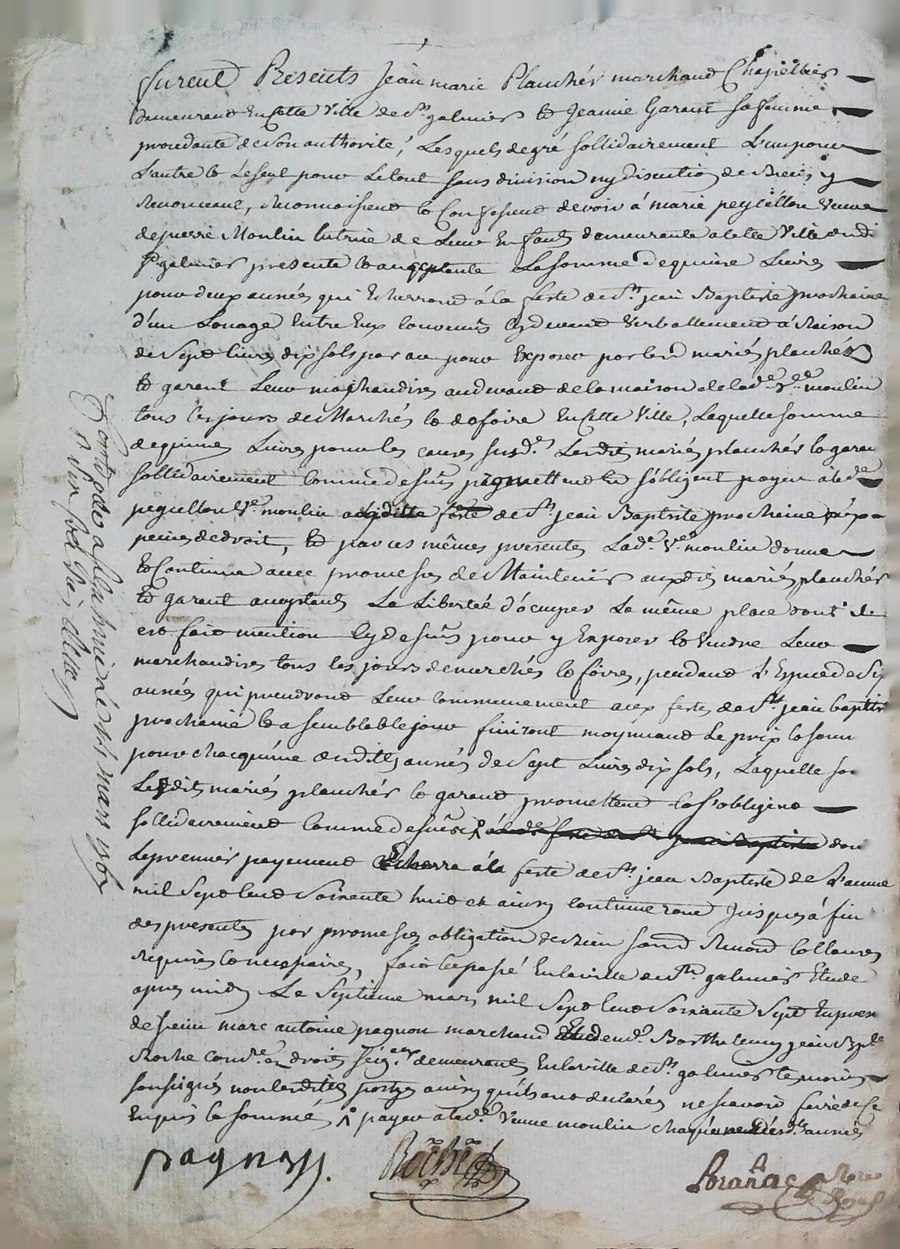 furent Presents Jean marie Planchér marchand Chapellier
demeurant En Cette Ville de St galmier et Jeanne Garant sa femme
procedante de son authorité, Lesquels de gré sollidairement L'un pour
L'autre et le seul pour le tout sans division ny discution de Biens y
Renonceant, Reconnoissent et Confessent devoir á marie peytellon veuve
de pierre Moulin tutrice de Leur Enfants demeurante a Cette Ville dudi
St galmier presente et acceptante La somme de quinze Livres
pour deux années qui Echerront á la feste de St jean Baptiste prochaine
d'un Louage Entre Eux Convenus Cy devant verballement á Raison
de Sept livres dix sols par an pour Exposer par les d mariés planchér
et garant Leur marchandises au devant de la maison de lad. ve moulin
tous les jours de Marchés et de foire En Cette Ville, Laquelle somme
de quinze Livres pour les causes susd. Lesdits mariés planchér et garan
sollidairement Comme dessus promettent et s'obligent payer á lad.
peytellon ve moulin a laditte feste de St jean Baptiste prochaine á
peines de droit, et par ces mêmes presentes Lad. ve moulin donne
et Continue avec promesses de Maintenir auxdits mariés planchér
et garant acceptants La Liberté d'ocuper La même place dont il
est fait mention Cy dessus pour y Exposer et Vendre Leur
marchandises tous les jours de marchés et foires, pendant L'Espace de Six
années qui prendront Leur Commencement aux festes de St jean baptis
prochaine et a semblable jour finiront moyennant Le prix et som
pour chacquune desdittes années de Sept Livres dix sols, Laquelle so
Lesdits mariés planchér et garant promettent et s'obligent
sollidairement Comme dessus don
Le premier payement Echerra á la feste de St jean Baptiste de L'année
mil Sept Cent Soixante huit et ainsy Continueront jusques á fin
des presentes par promesses obligation de Biens Renond et Clauses
Requises et necessaires, fait et passé En la ville de St galmier Etude
apres midy Le Septieme mars mil Sept Cent Soixante Sept En presen
de sieur marc antoine pagnon marchand Barthelemy jean Bapte
Roche Comre á droits Seigaux demeurants En la ville de St galmier temoins
soussignés non lesdittes parties ainsy qu'ils ont declarés ne scavoir faire de ce
Enquis et sommés, payer a lad. Veuve moulin années
pagnon.
Roche
Boranac
Controlé a St galmier Le mars 1767
R six sols